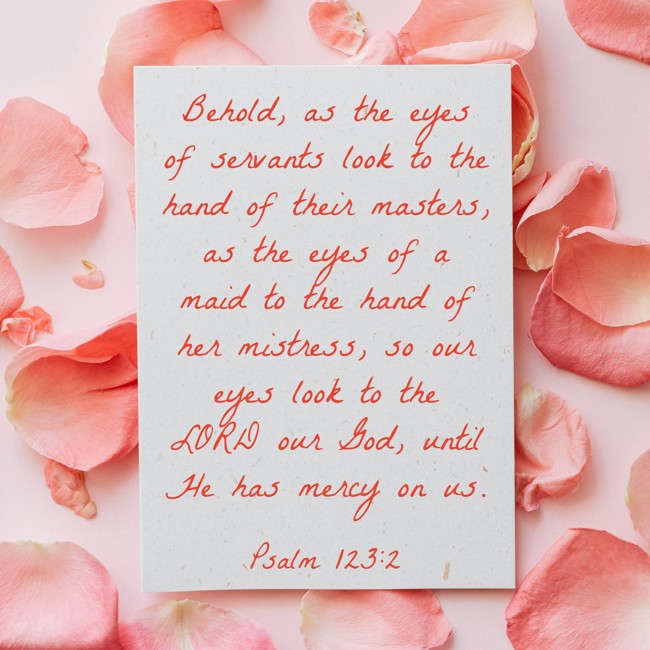 Behold, as the eyes
of servants look to the
hand of their masters,
as the eyes of a
maid to the hand of
her mistress, so our
eyes look to the
LORD our God, until
He has mercy on us.
Psalm 123:2